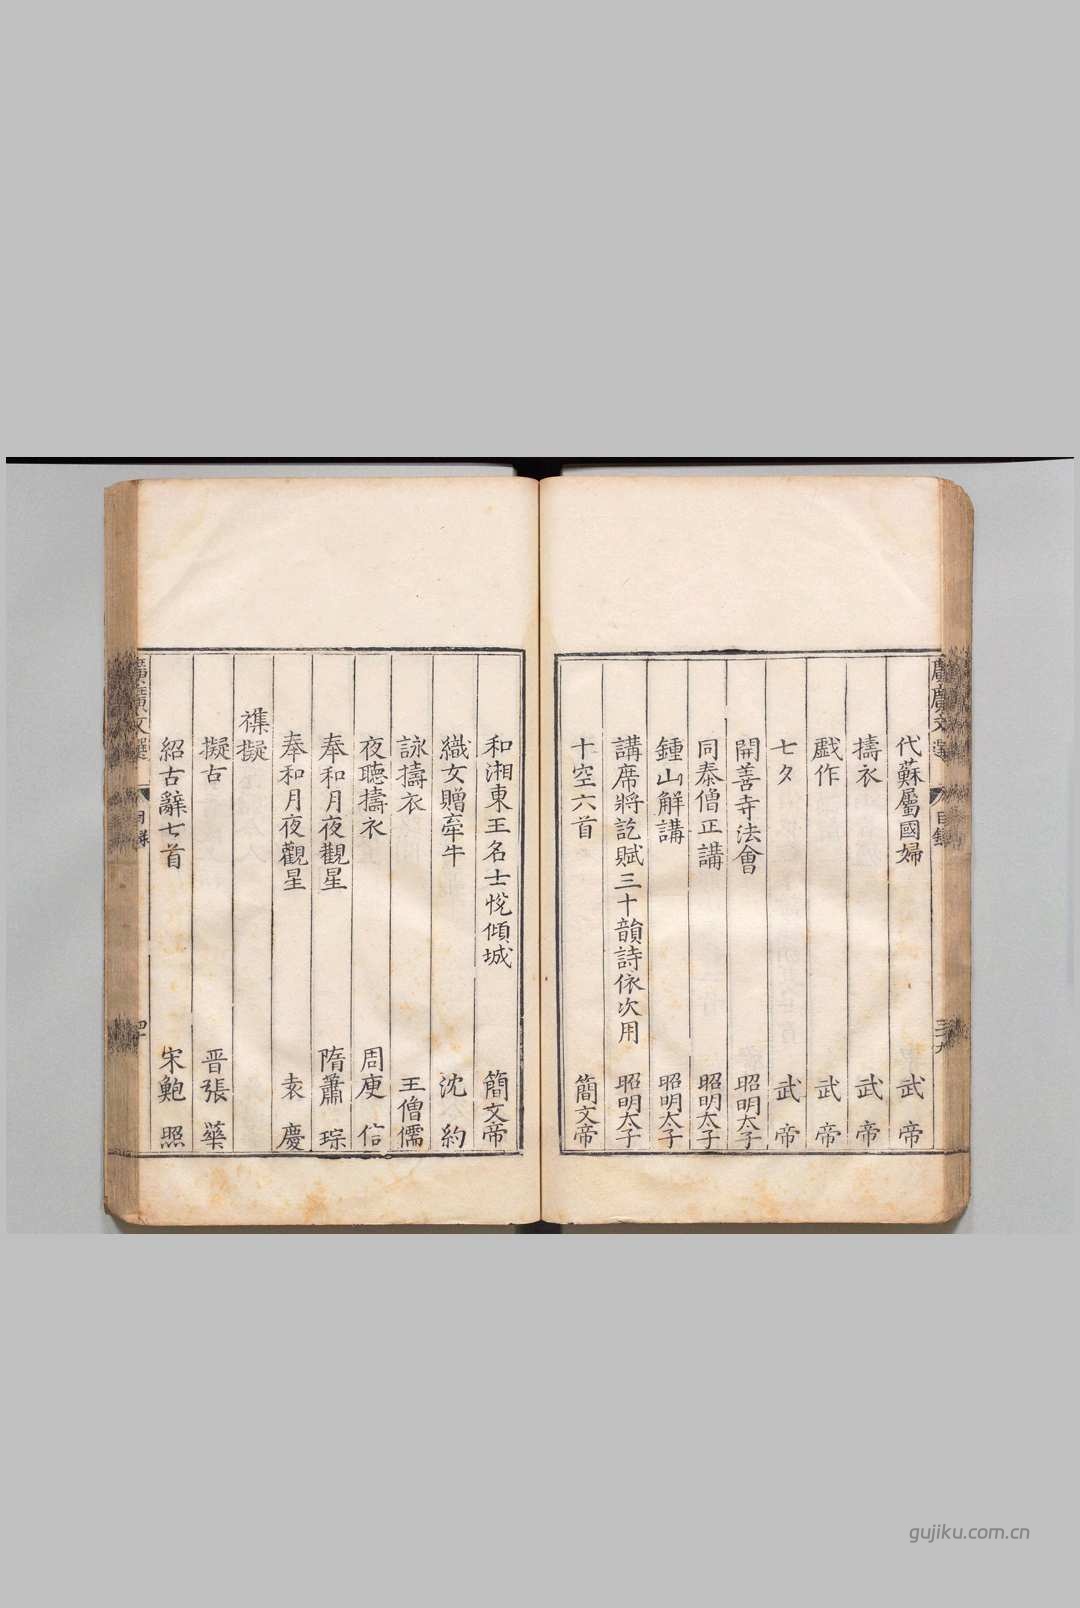 廣廣文選 目錄 三十九
代蘇屬國婦 武帝
擣衣 武帝
戲作 武帝
七夕 武帝
開善寺法會 昭明太子
同泰僧正講 昭明太子
鍾山解講 昭明太子
講席將訖賦三十韻詩依次用 昭明太子
十空六首 簡文帝
和湘東王名士悅傾城 簡文帝
織女贈牽牛 沈約
詠擣衣 王僧儒
夜聽擣衣 周庾信
奉和月夜觀星 隋蕭琮
奉和月夜觀星 袁慶
襍擬
擬古 晉張華
紹古辭七首 宋鮑照
廣廣文選 目錄 四十
gujiku.com.cn